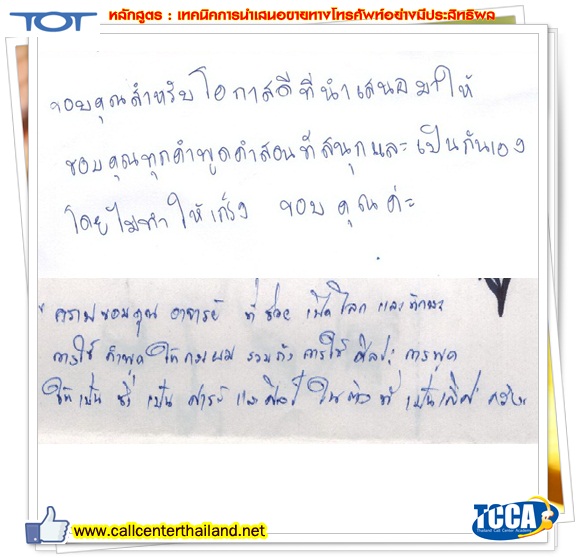 TOT หลักสูตร : เทคนิคการนำเสนอขายทางโทรศัพท์อย่างมีประสิทธิผล
ขอบคุณสำหรับโอกาสดีที่นำเสนอมาให้
ขอบคุณทุกคำพูดคำสอนที่สนุกและเป็นกันเอง
โดยไม่ทำให้เกร็ง ขอบคุณค่ะ
ขอบคุณ อาจารย์ ที่ช่วย เปิดโลก และทักษะ
การใช้ คำพูด ให้กับผม รวมถึง การใช้ ศิลปะ การพูด
ให้เป็น เป็น และ ใน ที่ เป็นเลิศ
TCCA
Thailand Call Center Academy
www.callcenterthailand.net